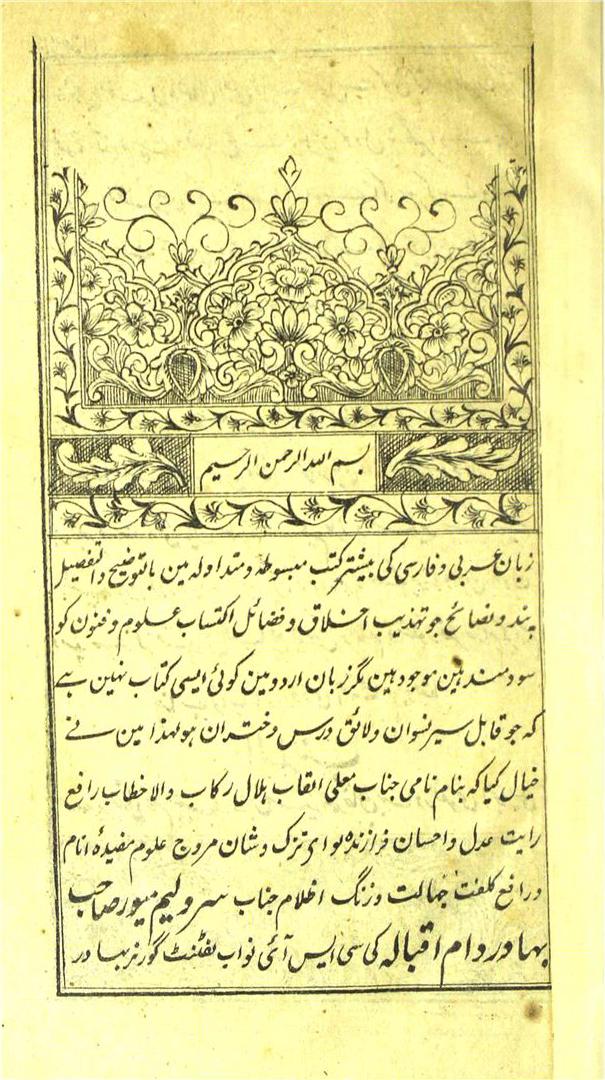 بسم الله الرحمن الرحیم
زبان عربی و فارسی کی بیشتر کتب مبسوطہ و متداولہ مین بالتوضیح والتفصیل
پند و نصائح جو تہذیب اخلاق و فضائل اکتساب علوم و فنون کو
سودمند ہین موجود ہین مگر زبان اردو مین کوئی ایسی کتاب نہین ہے
کہ جو قابل سیر نسوان و لائق درس دختران ہو لہذا مین نے
خیال کیا کہ بنام نامی جناب معلی القاب ہلال رکاب والا خطاب رافع
رایت عدل و احسان فرازندہ لوای تزک و شان مروج علوم مفیدۂ انام
و رافع کلفت جہالت و زنگ اظلام جناب سر ولیم میور صاحب
بہادر دام اقبالہ کی سی ایس آئی نواب لفٹننٹ گورنر بہادر